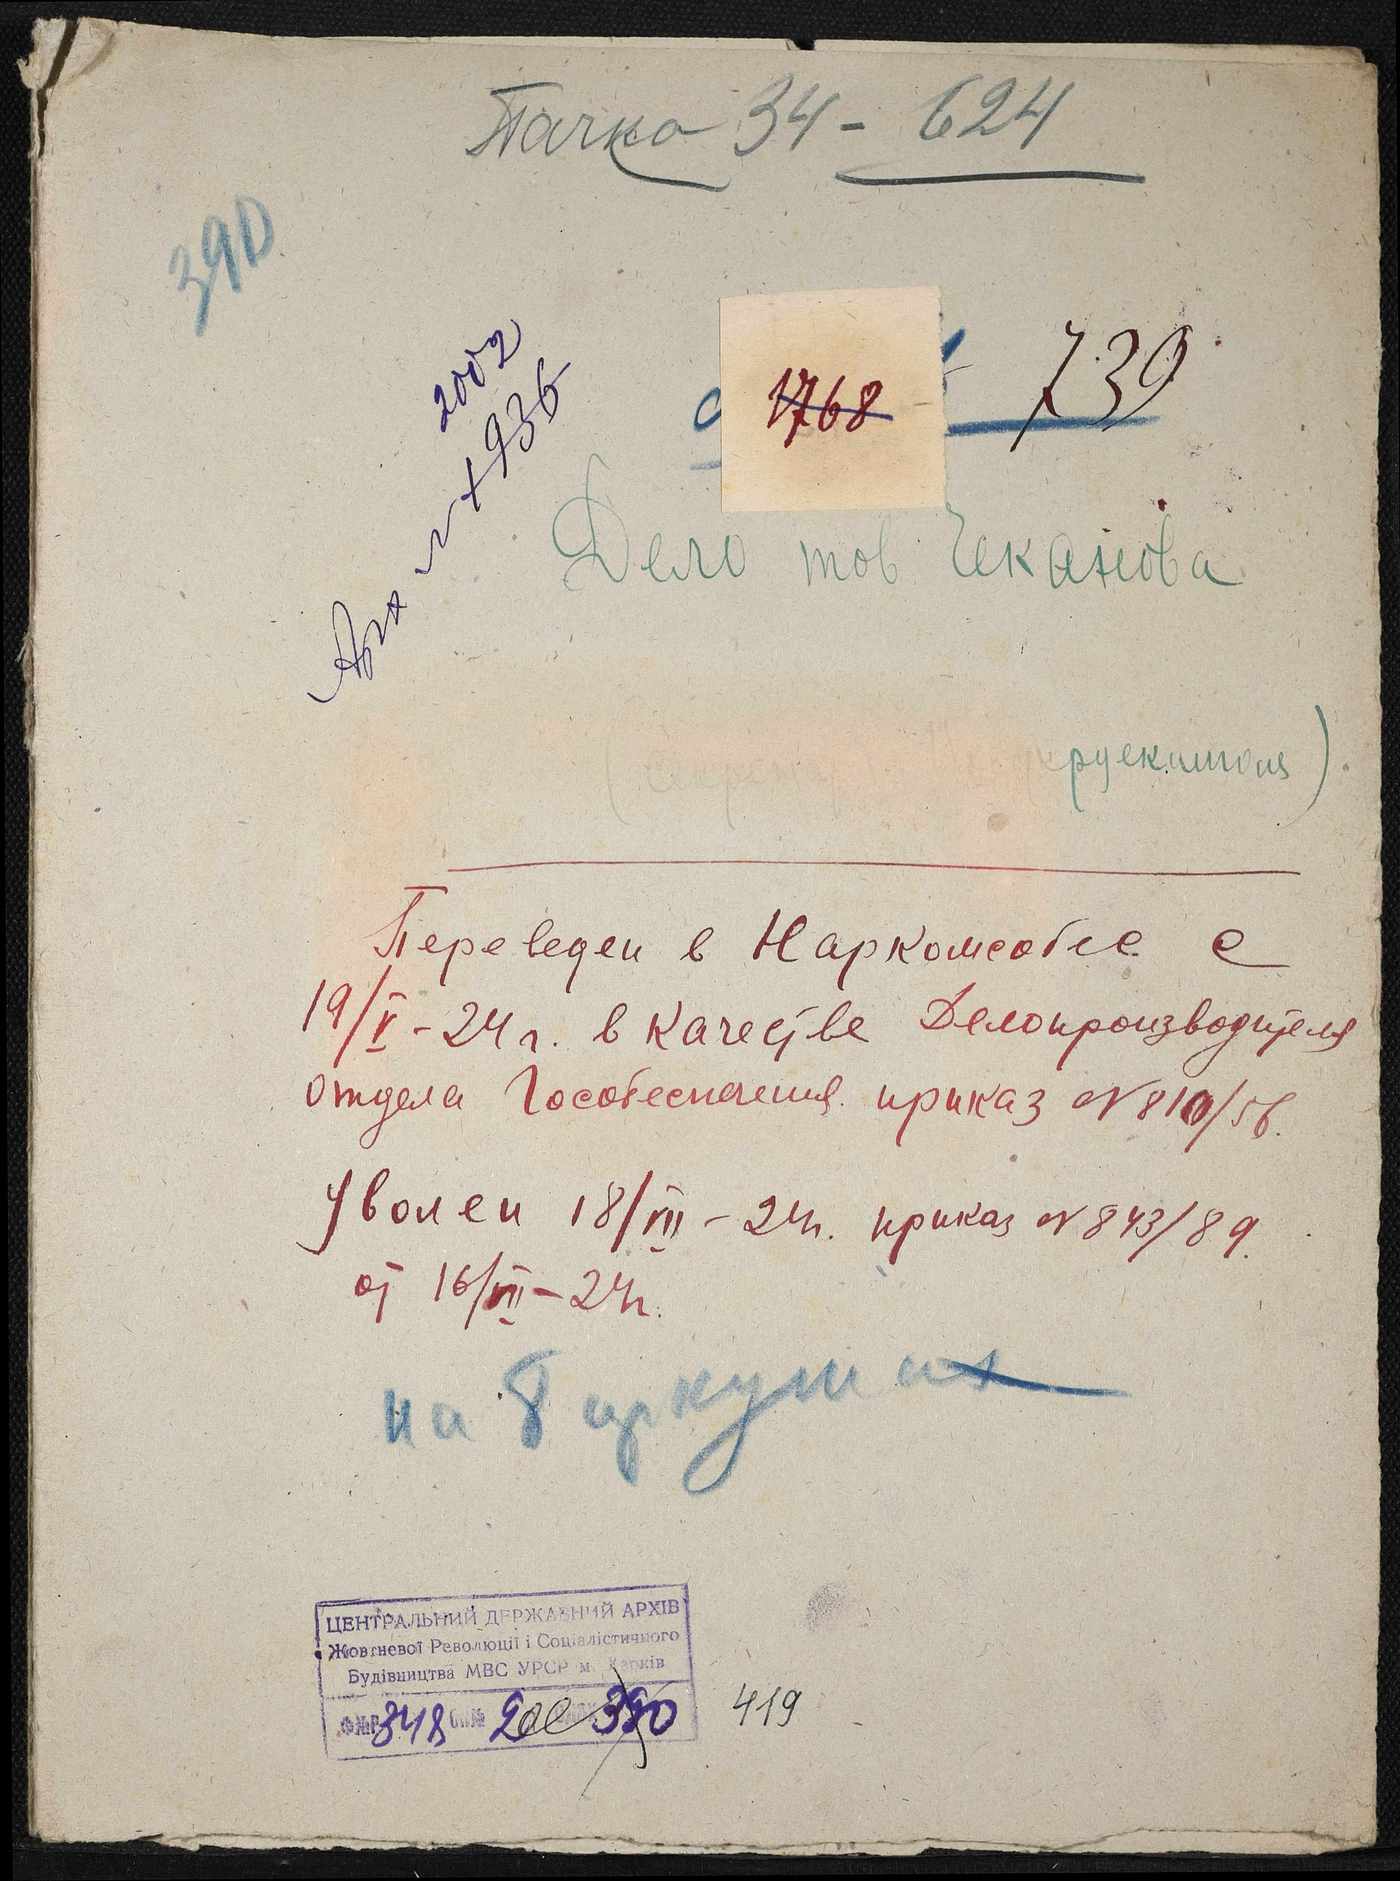 Пачка 34 - 624
390
2002
1936
1768
739
Дело тов Чеканова
(секретар рускимоля)
Переведен в Наркомсобес с
19/V - 24 г. в качестве Делопроизводителя
отдела Гособеспечения приказ № 810/56.
Уволен 18/VII - 24г. приказ № 843/89.
от 16/VII - 24г.
на 8 аркушах
ЦЕНТРАЛЬНИЙ ДЕРЖАВНИЙ АРХІВ
Жовтневої Революції і Соціалістичного
Будівництва МВС УРСР м. Харків
Ф.№ Р 348 Оп.№ 2 390
419